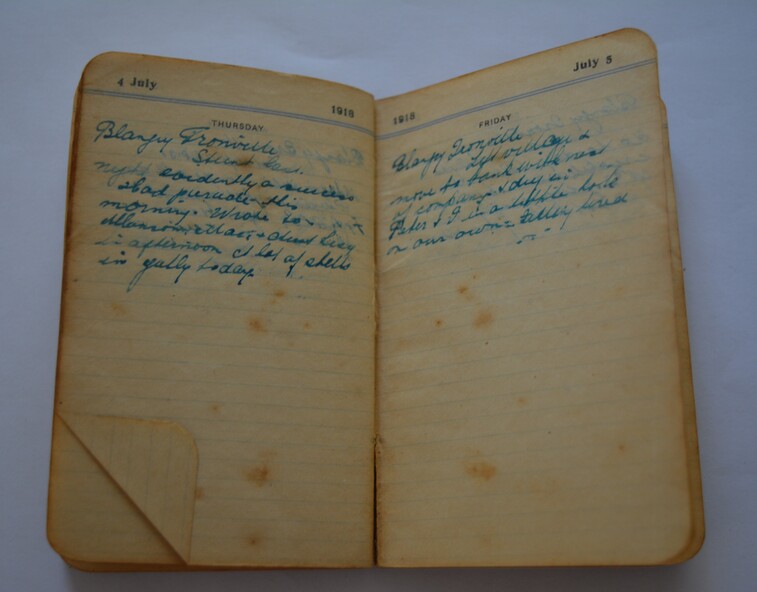 4 July
1918
THURSDAY
Blangy Tronville
Stunt last
night evidently a success
had parade this
morning. Wrote to
Mamma & Dad & Aunt Lizzy
in afternoon A lot of shells
in gully today
July 5
1918
FRIDAY
Blangy Tronville
Left village &
move to bank with rest
of company & dug in
Peter & I in a little hole
on our own = Fatty loved